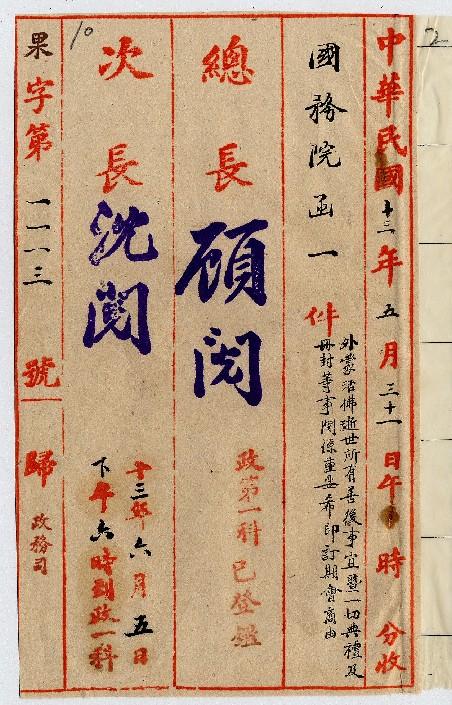 中華民國十三年五月三十一日午 時 分收
國務院函一件
外蒙活佛逝世所有善後事宜暨一切典禮及
冊封等事關係重要希即訂期會商由
總長
顧閱
政第一科已登鑑
次長
沈閱
十三年六月五日
下午六時到政一科
果字第一一一三號
歸政務司
10
2